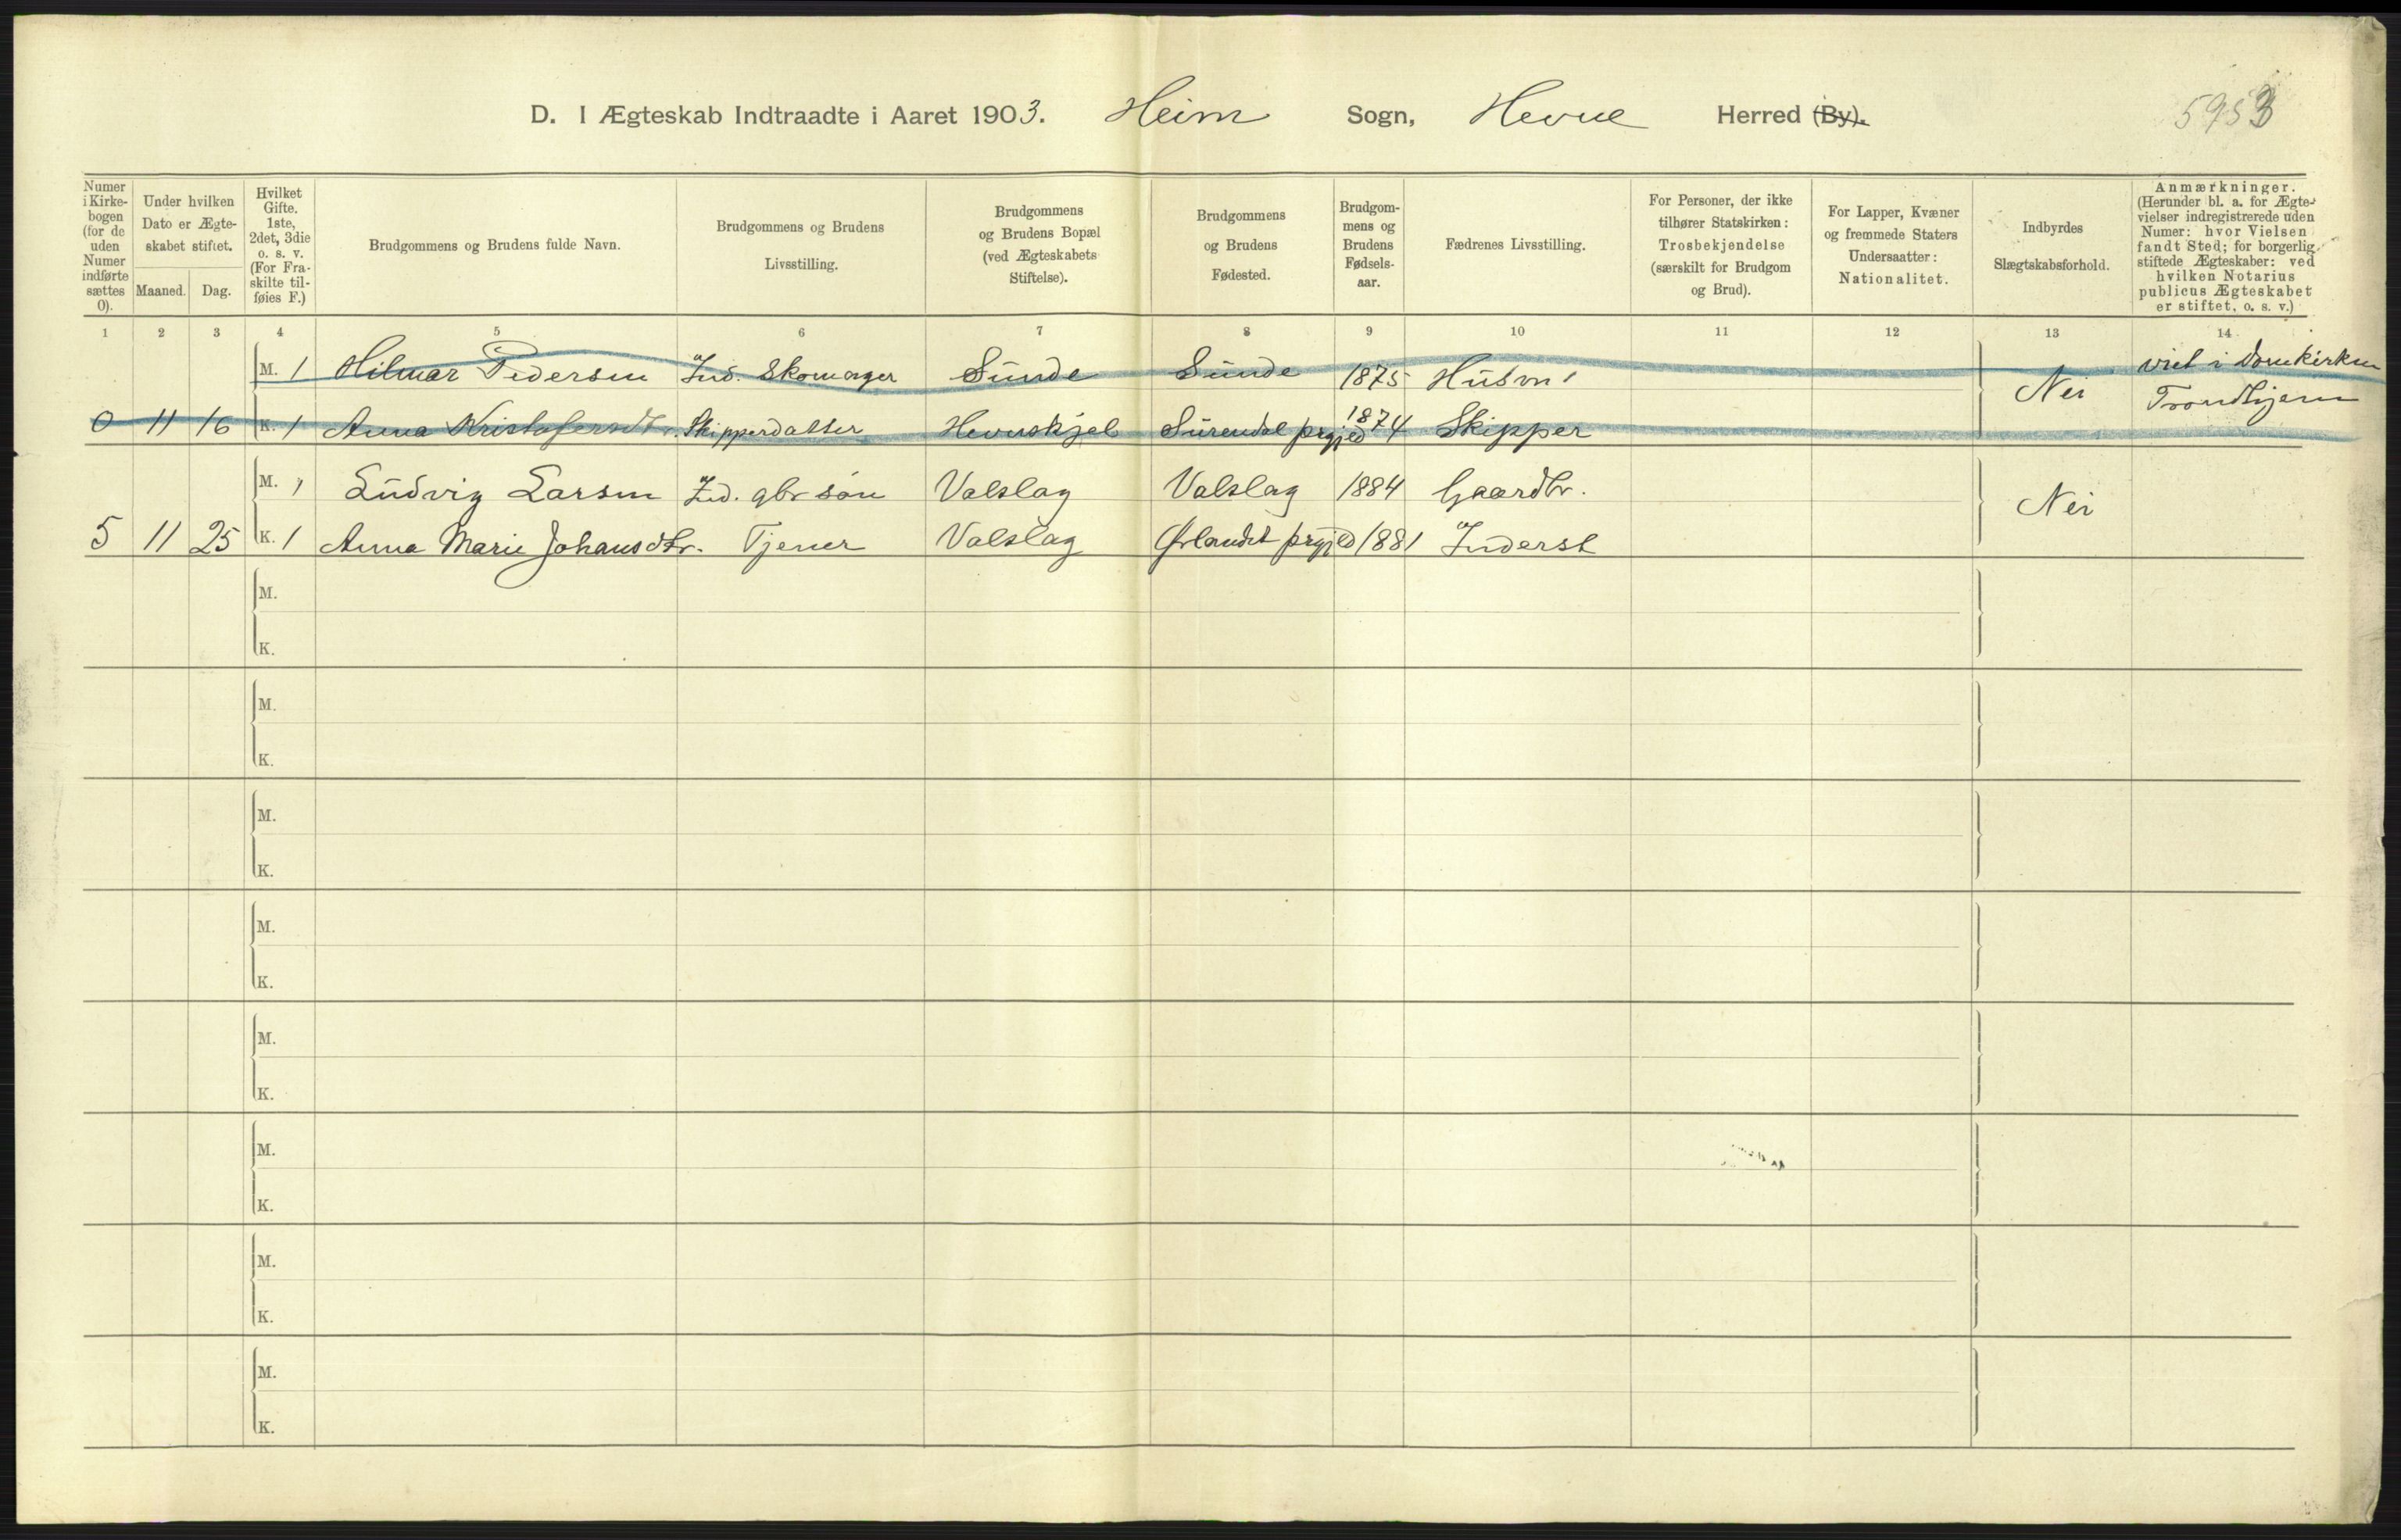 D. I Ægteskab Indtraadte i Aaret 1903. Heim Sogn, Hevne Herred (By).
Numer i Kirke-bogen (for de uden Numer indførte sættes 0).
Under hvilken Dato er Ægte-skabet stiftet.
Maaned. Dag.
Hvilket Gifte. 1ste, 2det, 3die o. s. v. (For Fra-skilte til-føies F.)
Brudgommens og Brudens fulde Navn.
Brudgommens og Brudens Livsstilling.
Brudgommens og Brudens Bopæl (ved Ægteskabets Stiftelse).
Brudgommens og Brudens Fødested.
Brudgom-mens og Brudens Fødsels-aar.
Fædrenes Livsstilling.
For Personer, der ikke tilhører Statskirken: Trosbekjendelse (særskilt for Brudgom og Brud).
For Lapper, Kvæner og fremmede Staters Undersaatter: Nationalitet.
Indbyrdes Slægtskabsforhold.
Anmærkninger. (Herunder bl. a. for Ægte-vielser indregistrerede uden Numer: hvor Vielsen fandt Sted; for borgerlig stiftede Ægteskaber: ved hvilken Notarius publicus Ægteskabet er stiftet, o. s. v.)
1 2 3 4 5 6 7 8 9 10 11 12 13 14
M. 1 Hilmar Pedersen Ind. Skomager Sunde Sunde 1875 Husm. Nei viet i Domkirken Trondhjem
0 11 16 K. 1 Anna Kristofersdtr. Skipperdatter Hevnskjel Surendal prgjeld 1874 Skipper
M. 1 Ludvig Larsen Ind. gbr søn Valslag Valslag 1884 Gaardbr. Nei
5 11 25 K. 1 Anna Marie Johansdtr. Tjener Valslag Ørlandet prgjeld 1881 Inderst
M.
K.
M.
K.
M.
K.
M.
K.
M.
K.
M.
K.
M.
K.
M.
K.